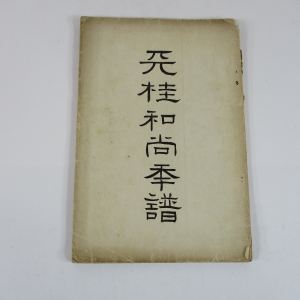 天桂和尚年譜